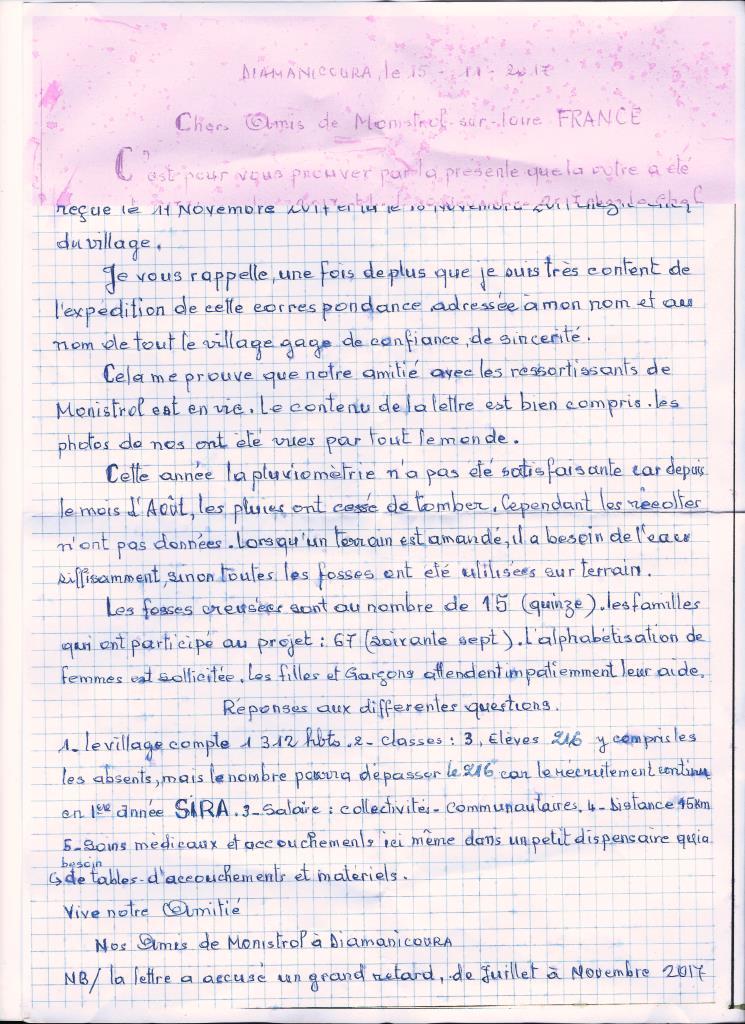 DIAMANICOURA, le 15 - 11 - 2017
Chers Amis de Monistrol-sur-loire FRANCE
C'est pour vous prouver par la présente que la vôtre a été
reçue le 11 Novembre 2017 et lu le Novembre 2017 chez le chef
du village.
Je vous rappelle, une fois de plus que je suis très content de
l'expédition de cette correspondance adressée à mon nom et au
nom de tout le village gage de confiance, de sincerité.
Cela me prouve que notre amitié avec les ressortissants de
Monistrol est en vie. Le contenu de la lettre est bien compris. les
photos de nos ont été vues par tout le monde.
Cette année la pluviométrie n'a pas été satisfaisante car depuis
le mois d'Août, les pluies ont cessé de tomber. Cependant les récoltes
n'ont pas données. Lorsqu'un terrain est amandé, il a besoin de l'eau
suffisamment, sinon toutes les fosses ont été utilisées sur terrain.
Les fosses creusées sont au nombre de 15 (quinze). les familles
qui ont participé au projet : 67 (soixante sept). L'alphabétisation de
femmes est sollicitée. Les filles et Garçons attendent impatiemment leur aide.
Réponses aux differentes questions.
1- le village compte 1 312 hbts. 2- classes : 3, Elèves 216 y compris les
les absents, mais le nombre pourra dépasser le 216 car le recrutement continue
en 1ère année SIRA. 3- Salaire : collectivités - communautaires. 4- Distance 45km
5- Soins médicaux et accouchements ici même dans un petit dispensaire qui a
besoin
↳ de tables - d'accouchements et matériels.
Vive notre Amitié
Nos Amis de Monistrol à Diamanicoura
NB/ la lettre a accusé un grand retard, de Juillet à Novembre 2017